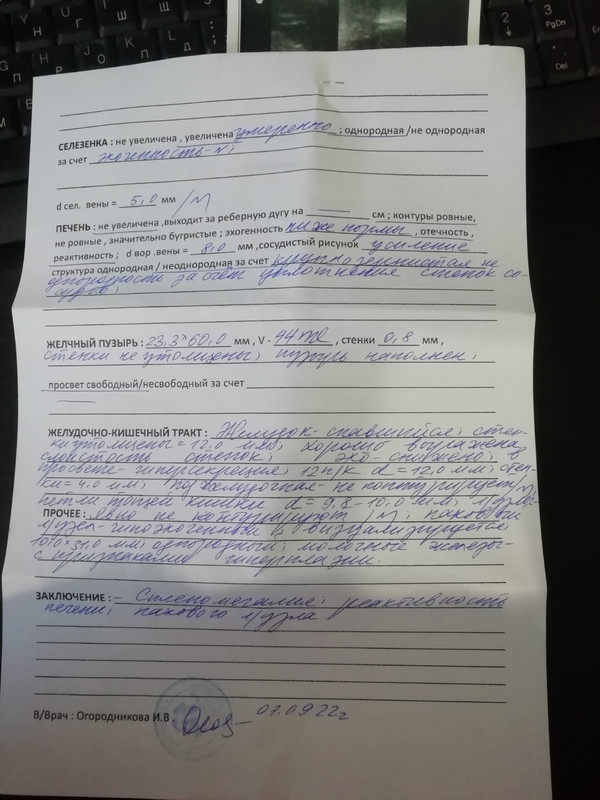 СЕЛЕЗЕНКА : не увеличена , увеличена умеренно ; однородная /не однородная
за счет эхогенность - N;
d сел. вены = 5,0 мм /N
ПЕЧЕНЬ : не увеличена ,выходит за реберную дугу на см ; контуры ровные,
не ровные , значительно бугристые ; эхогенность ниже нормы , отечность ,
реактивность ; d вор .вены = 8,0 мм ,сосудистый рисунок усиление
структура однородная / неоднородная за счет крупнозернистая не
однородность за счёт уплотнения стенок со-
судов;
ЖЕЛЧНЫЙ ПУЗЫРЬ : 23,3*60,0 мм , V - 44 мл , стенки 0,8 мм ,
стенки не утолщены; пузырь наполнен;
просвет свободный/несвободный за счет
ЖЕЛУДОЧНО-КИШЕЧНЫЙ ТРАКТ : Желудок - спавшийся; стен-
ки утолщены = 12,0 мм; хорошо выражена
слоистость стенок; эхо - снижено; в
просвете - гиперсекреция; 12п/к d = 12,0 мм; стен-
ки = 4,0 мм; поджелудочная - не контурирует;
петли тощей кишки d = 9,8 - 10,0 мм; л/узлы
ПРОЧЕЕ : явно не контурируют ; N; паховый
л/узел - гипоэхогенный визуализируется
10,0*31,0 мм; однородный; молочные железы -
с признаками гиперплазии.
ЗАКЛЮЧЕНИЕ : - Спленомегалия; реактивность
печени; пахового л/узла
В/Врач : Огородникова И.В. 07.09.22г
Ы У Г Ш Щ
П Р О Л Д
2
3
PgDn
Del